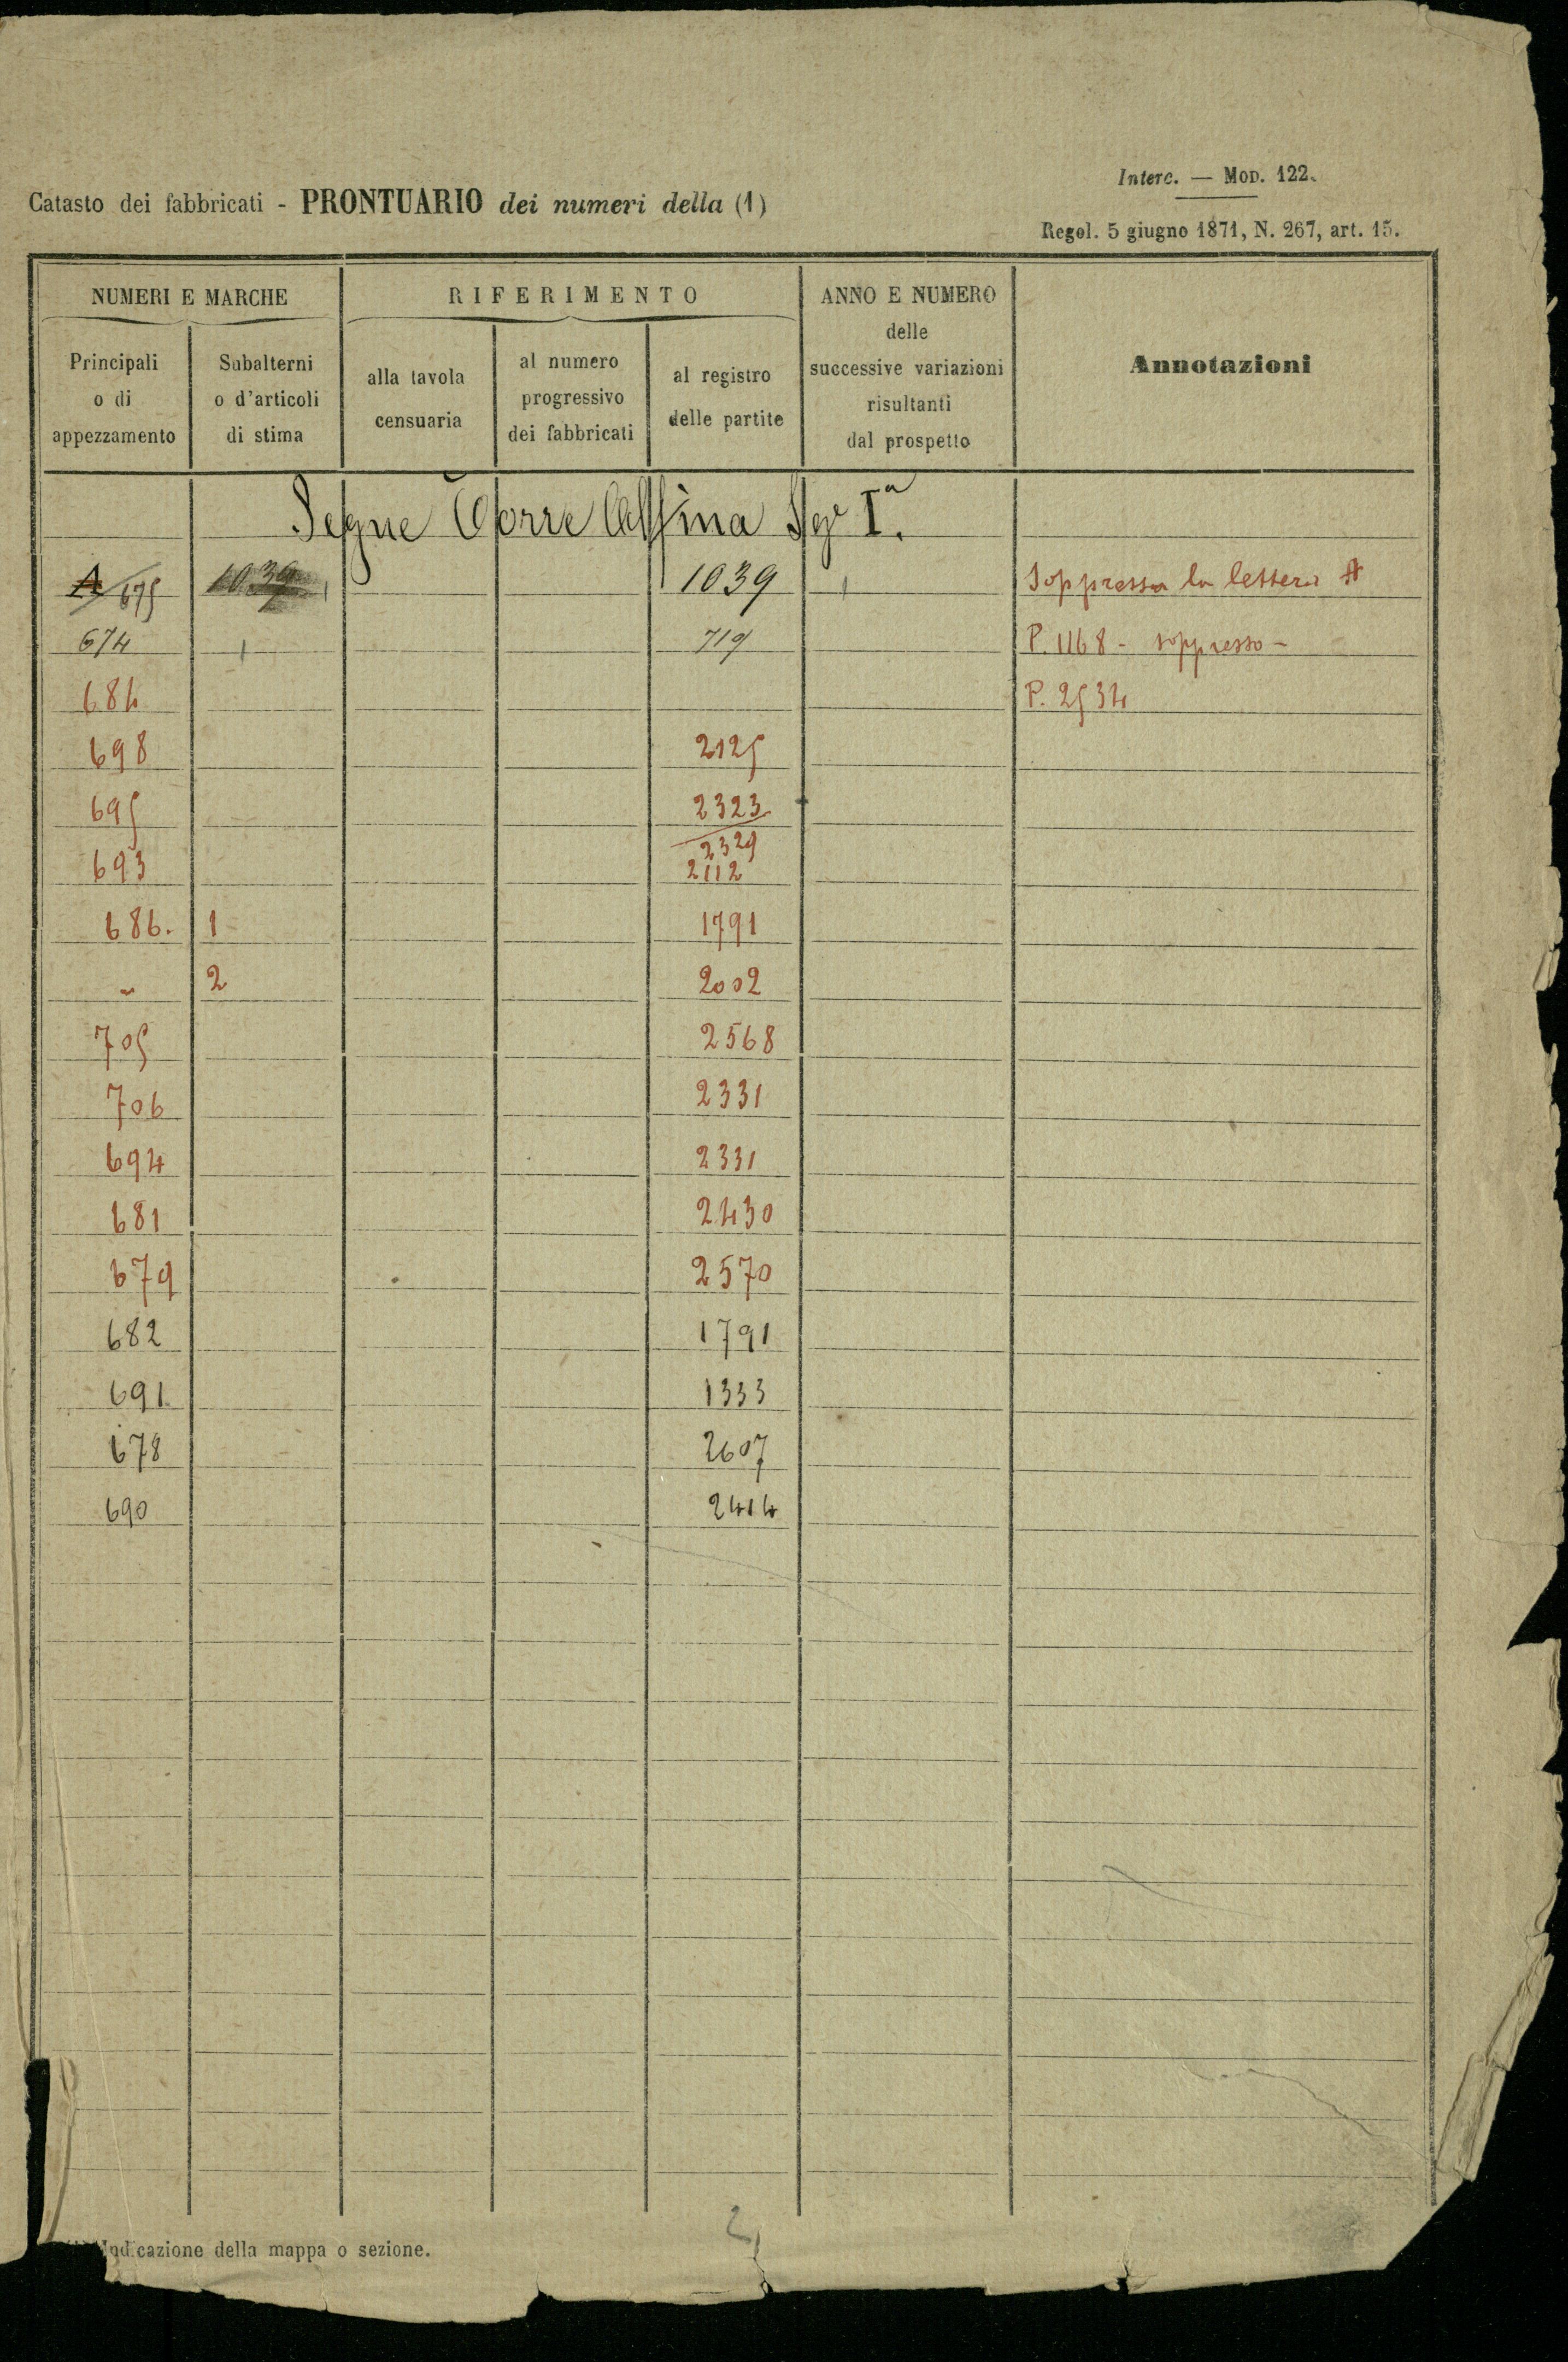 Interc. — Mod. 122.
Catasto dei fabbricati - PRONTUARIO dei numeri della (1)
Regol. 5 giugno 1871, N. 267, art. 15.
NUMERI E MARCHE
RIFERIMENTO
ANNO E NUMERO
delle
successive variazioni
risultanti
dal prospetto
Annotazioni
Principali
o di
appezzamento
Subalterni
o d'articoli
di stima
alla tavola
censuaria
al numero
progressivo
dei fabbricati
al registro
delle partite
Segue Torre Alfina Sez. Iª.
A/675 1039 1039 Soppressa la lettera A
674 1 719 P. 1168 - soppresso -
684 P. 2534
698 2125
695 2323
2329
693 2112
686. 1 1791
" 2 2002
705 2568
706 2331
694 2331
681 2430
679 2570
682 1791
691 1333
678 2607
690 2414
(1) Indicazione della mappa o sezione.